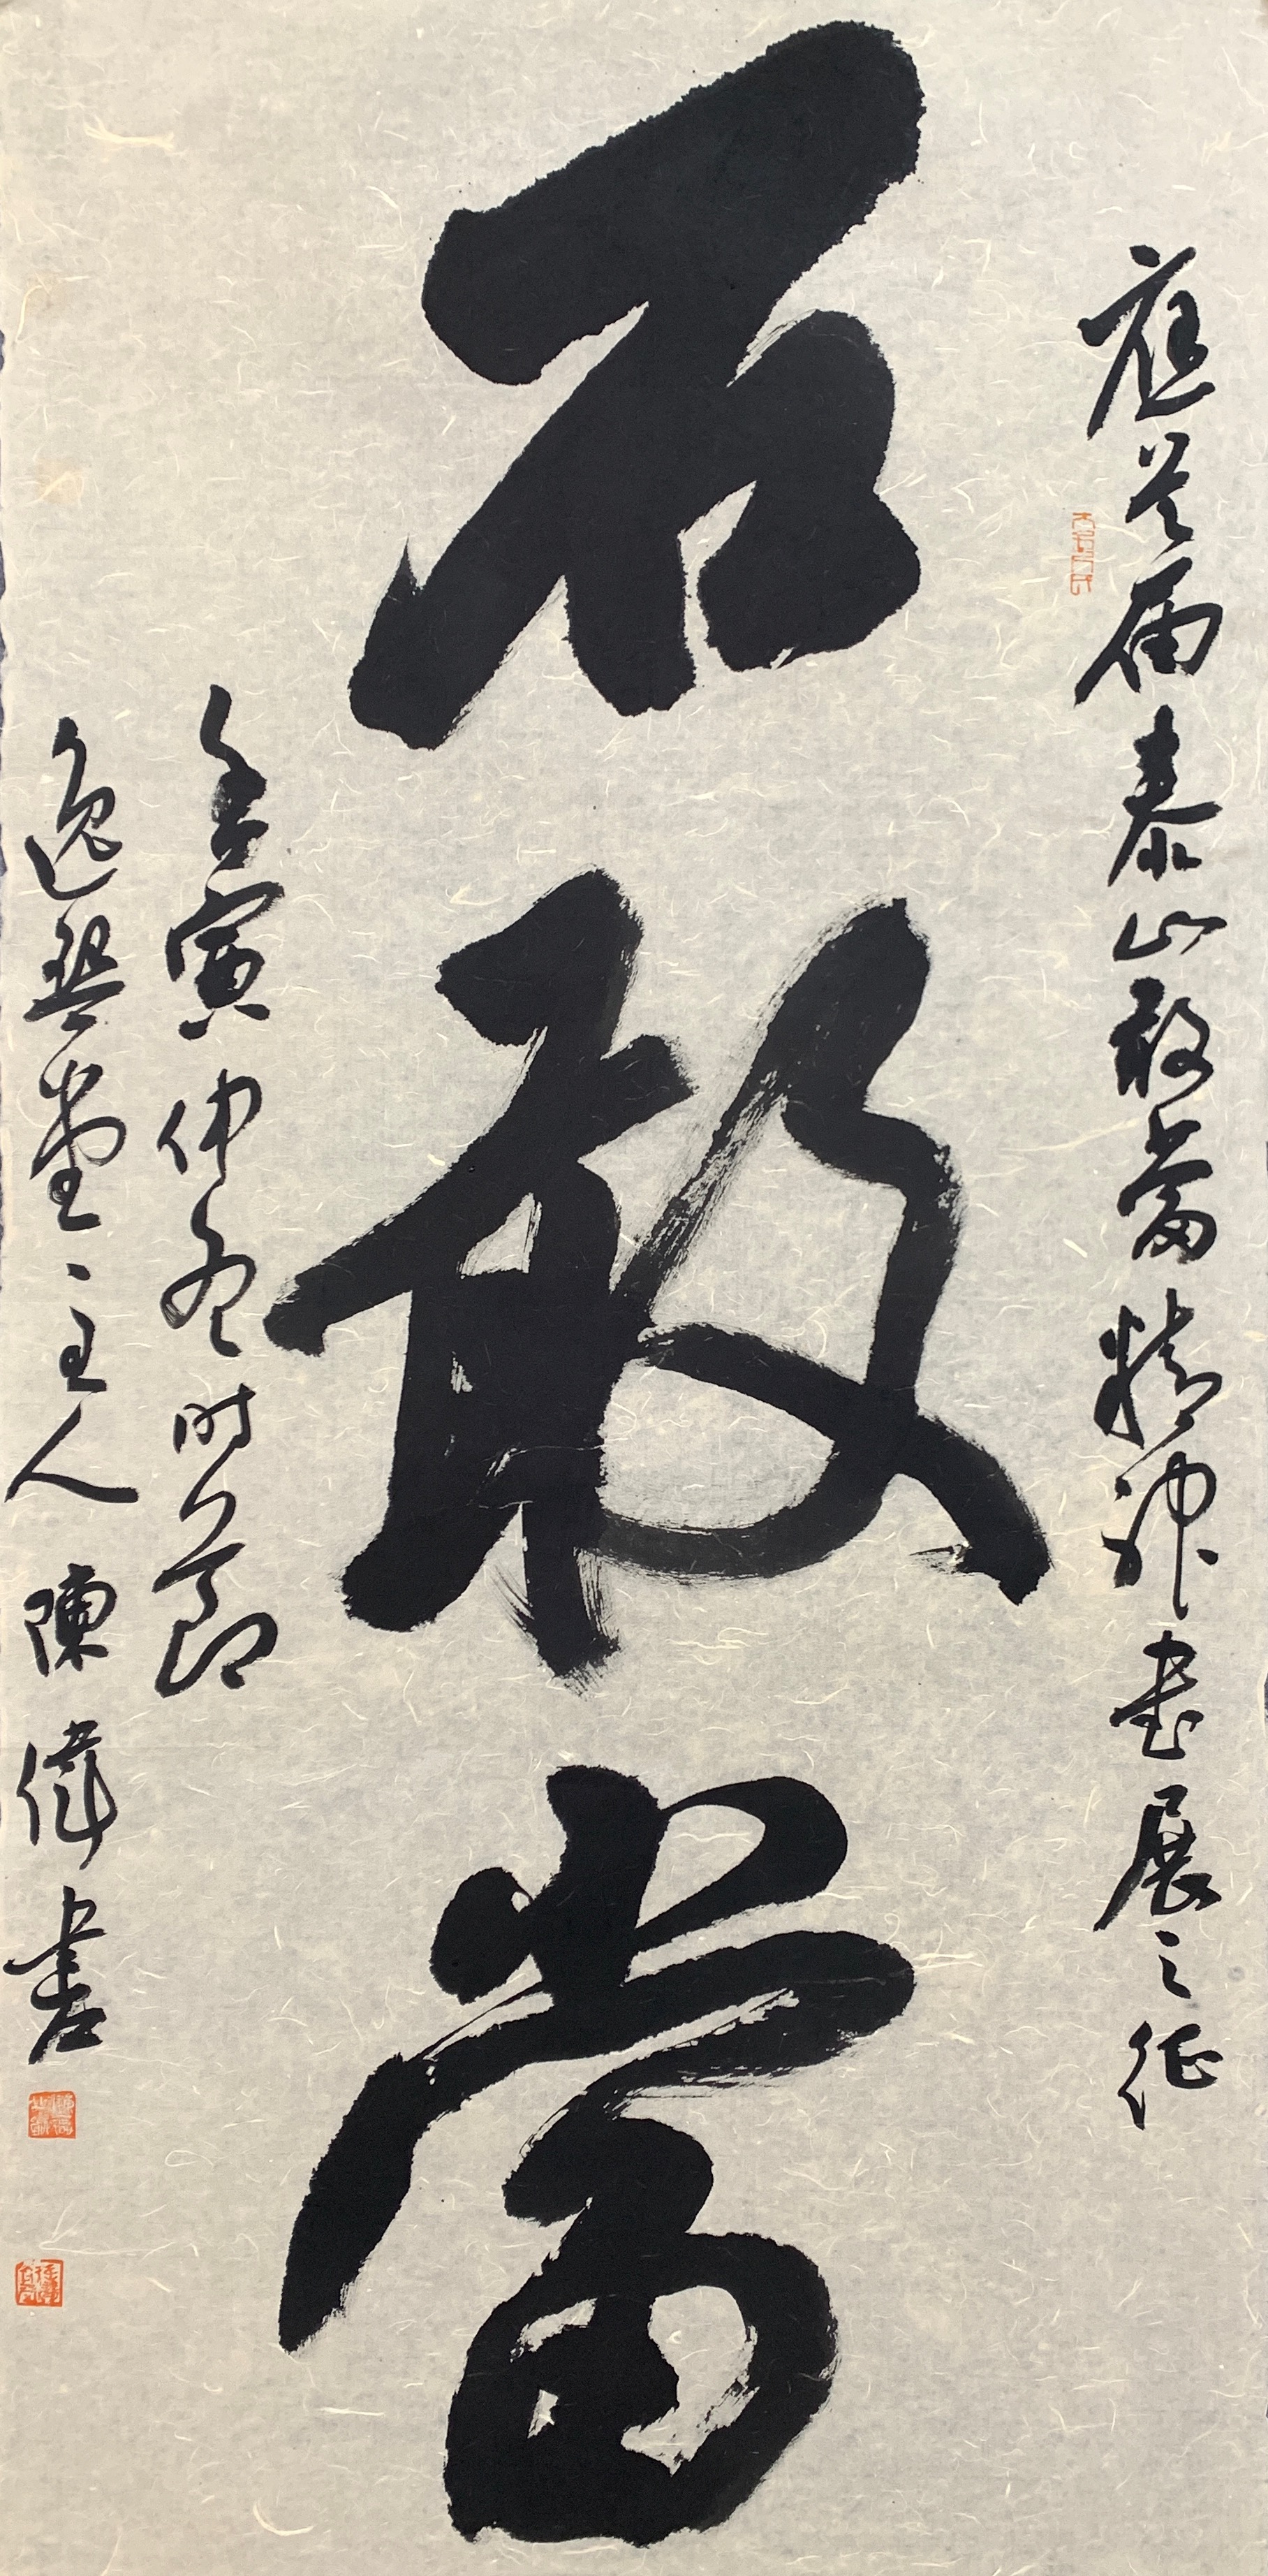 應首届泰山敢當精神書展之征
石敢當
壬寅仲冬時節
逸興堂主人陳偉書